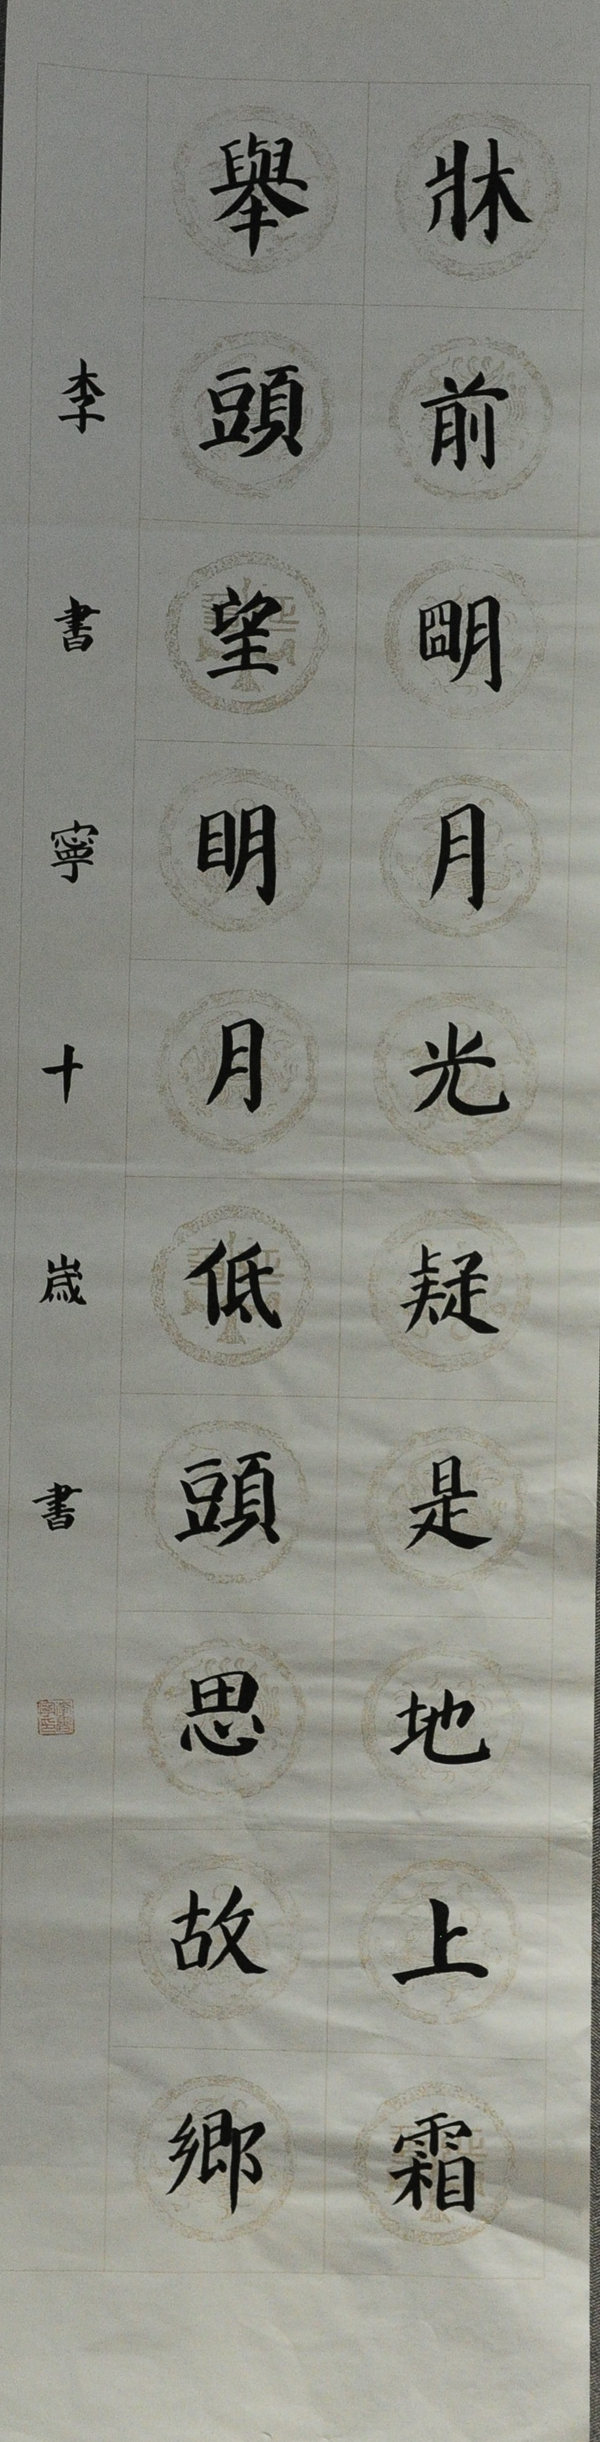 牀前朙月光疑是地上霜
舉頭望明月低頭思故鄉
李書寧十歲書